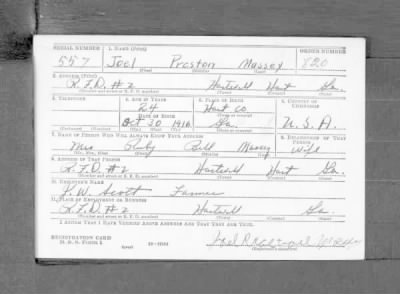 SERIAL NUMBER 1. NAME (Print) ORDER NUMBER
557 Joel Preston Massey 820
(First) (Middle) (Last)
2. ADDRESS (Print)
R.F.D. #2 Hartwell Hart Ga.
(Number and street or R. F. D. number) (Town) (County) (State)
3. TELEPHONE 4. AGE IN YEARS 5. PLACE OF BIRTH 6. COUNTRY OF CITIZENSHIP
24 Hart Co.
DATE OF BIRTH (Town or county)
Oct 30 1916 Ga. U.S.A.
(Exchange) (Number) (Mo.) (Day) (Yr.) (State or country)
7. NAME OF PERSON WHO WILL ALWAYS KNOW YOUR ADDRESS 8. RELATIONSHIP OF THAT PERSON
Mrs Ruby Bell Massey Wife
(Mr., Mrs., Miss) (First) (Middle) (Last)
9. ADDRESS OF THAT PERSON
R.F.D. #2 Hartwell Hart Ga.
(Number and street or R. F. D. number) (Town) (County) (State)
10. EMPLOYER'S NAME
Scott Farmer
11. PLACE OF EMPLOYMENT OR BUSINESS
R.F.D. #2 Hartwell Ga.
(Number and street or R. F. D. number) (Town) (County) (State)
I AFFIRM THAT I HAVE VERIFIED ABOVE ANSWERS AND THAT THEY ARE TRUE.
REGISTRATION CARD
D. S. S. FORM 1 (over) 16—17105 (Registrant's signature)